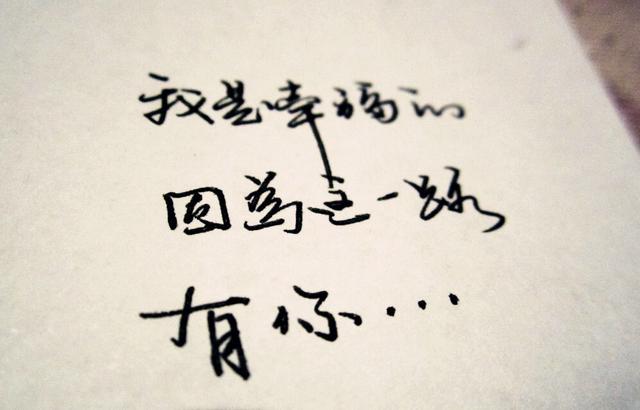 我是幸福的
因為這一路
有你…